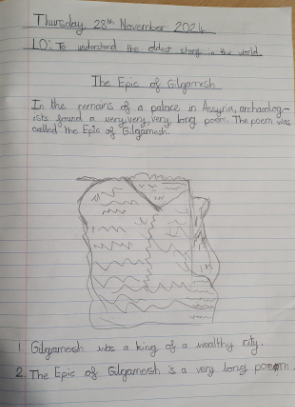 Thursday 28th November 2024
LO: To understand the oldest story in the world
The Epic of Gilgamesh
In the remains of a palace in Assyria, archaeolog-
ists found a very, very, very long poem. The poem was
called the Epic of Gilgamesh
1 Gilgamesh was a king of a wealthy city.
2. The Epic of Gilgamesh is a very long poem.